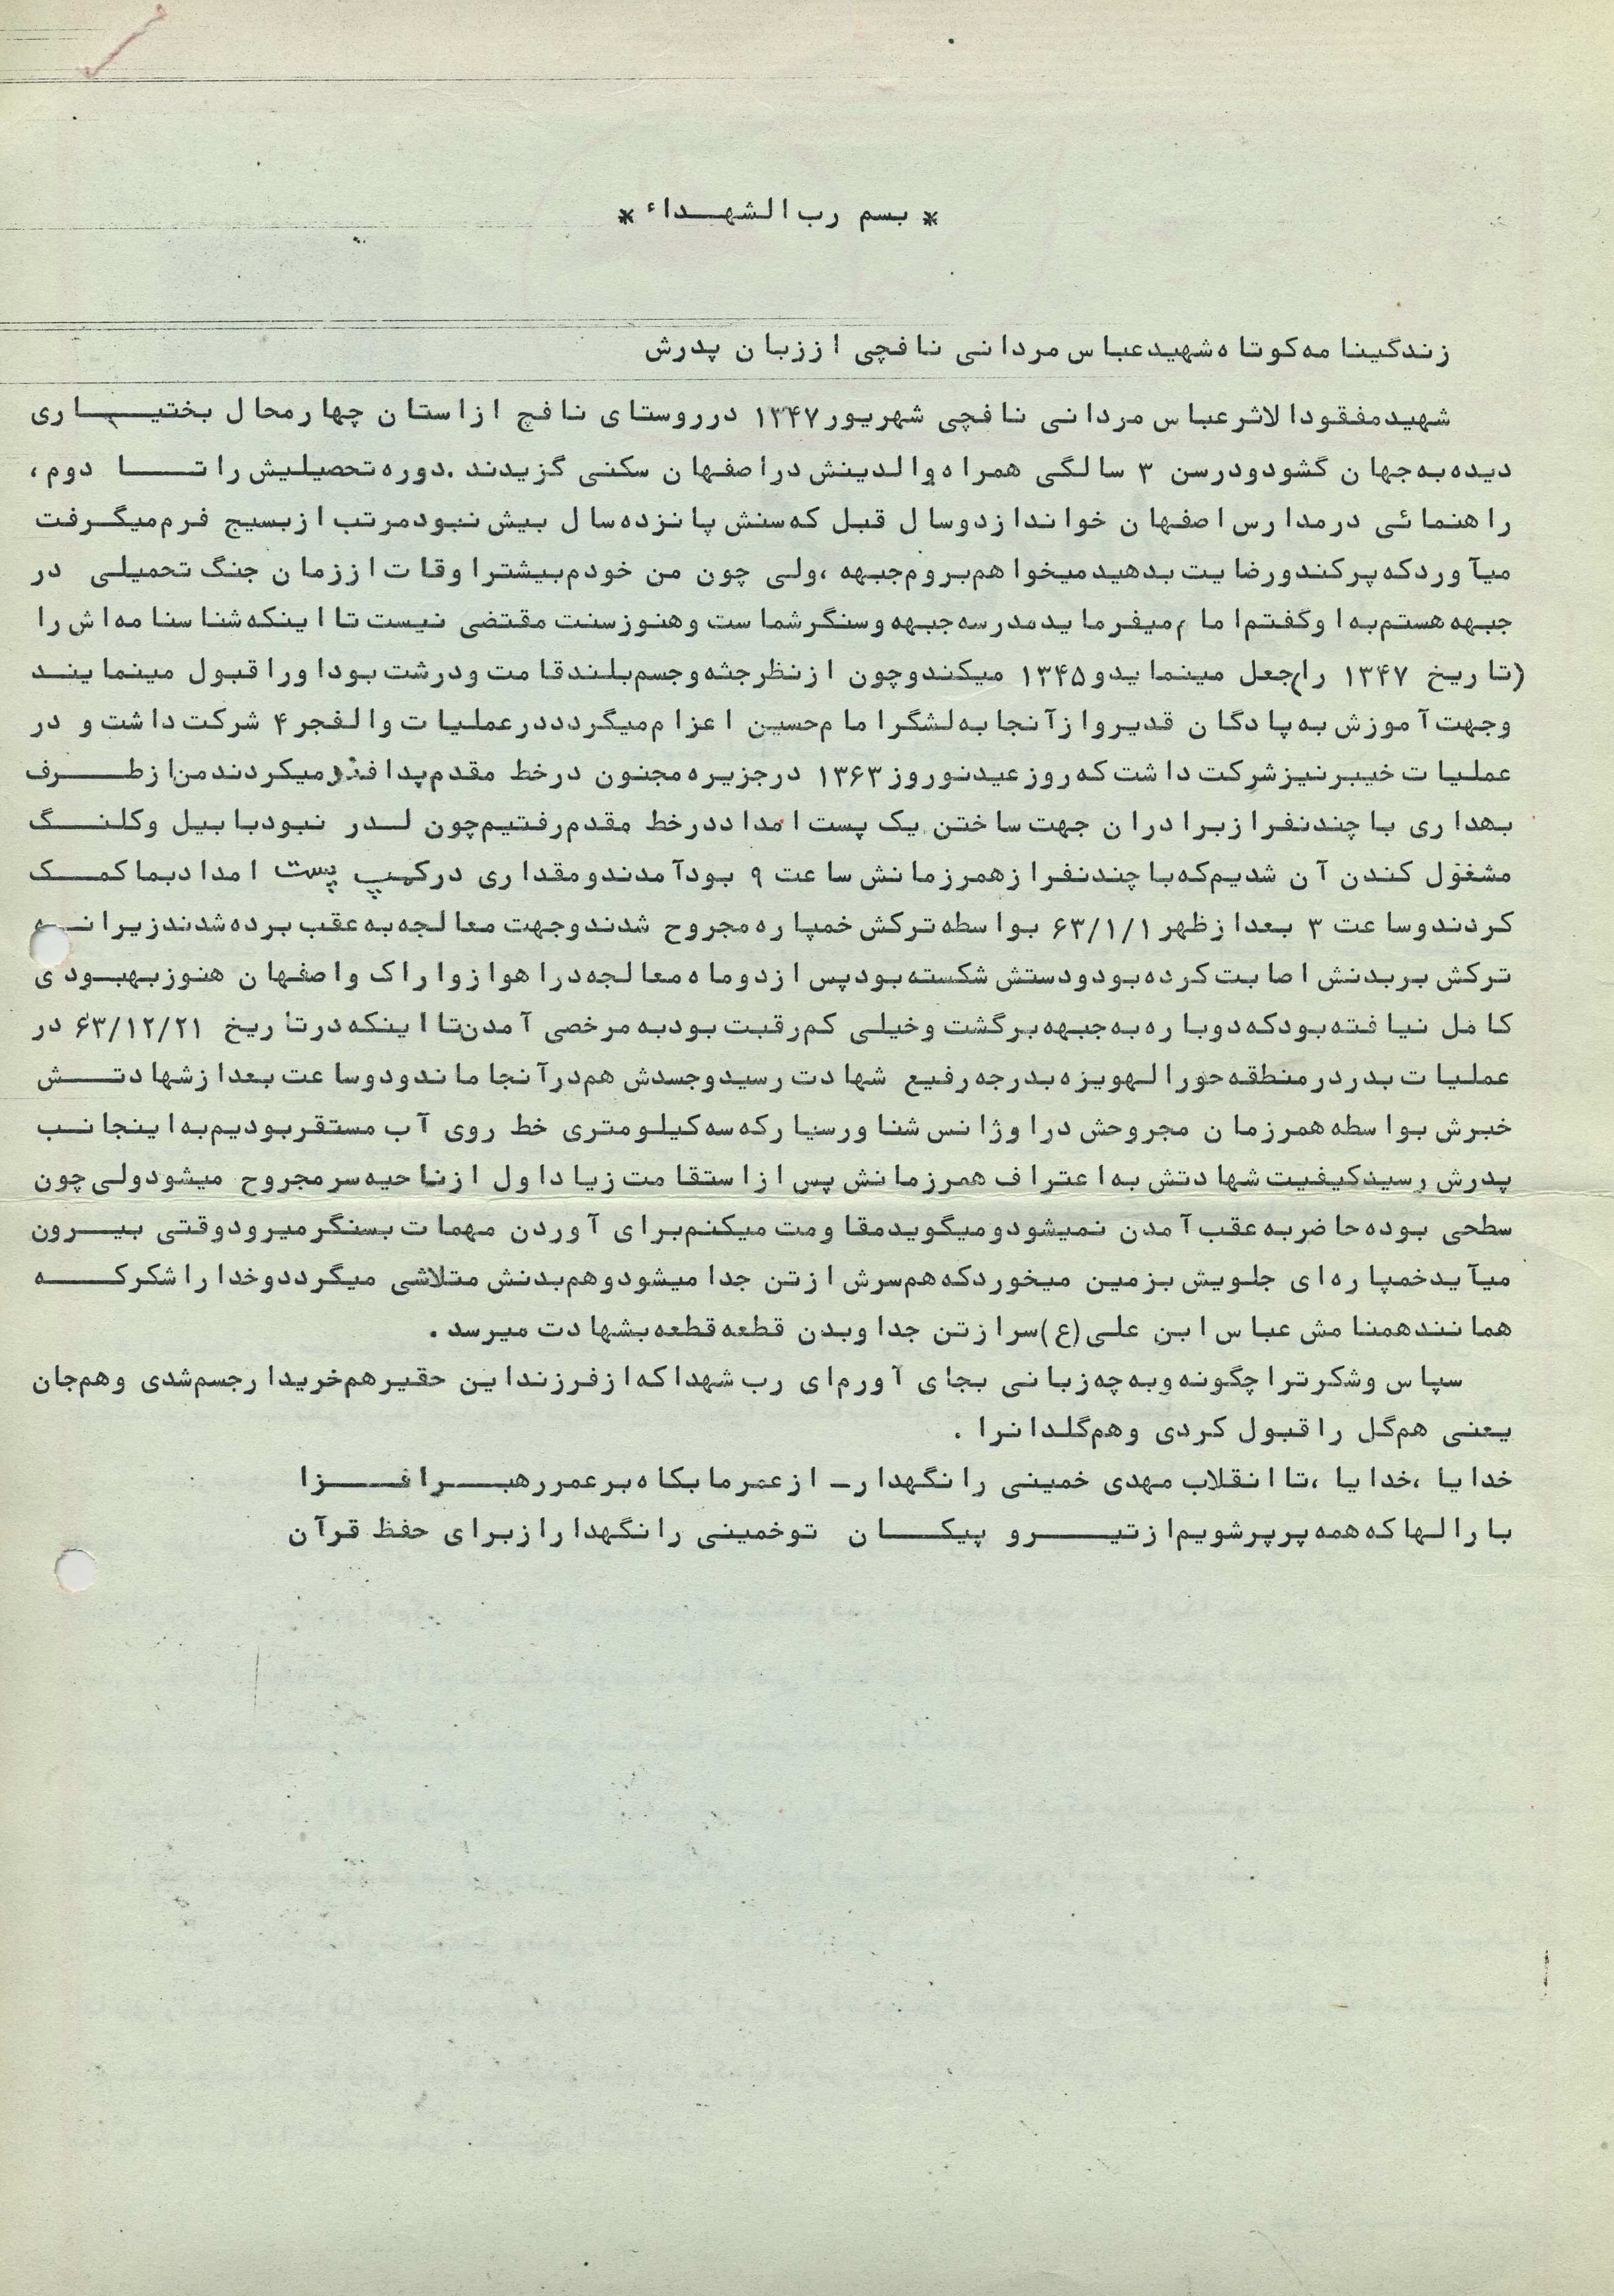 * بسم رب الشهداء *
زندگینامه کوتاه شهید عباس مردانی نافچی از زبان پدرش
شهید مفقودالاثر عباس مردانی نافچی شهریور ۱۳۴۷ در روستای نافچ از استان چهارمحال بختیاری
دیده به جهان گشود و در سن ۳ سالگی همراه والدینش در اصفهان سکنی گزیدند . دوره تحصیلیش را تا دوم ،
راهنمائی در مدارس اصفهان خواند از دو سال قبل که سنش پانزده سال بیش نبود مرتب از بسیج فرم میگرفت
میآورد که پر کند و رضایت بدهید میخواهم بروم جبهه ، ولی چون من خودم بیشتر اوقات از زمان جنگ تحمیلی در
جبهه هستم به او گفتم امام میفرماید مدرسه جبهه و سنگر شماست و هنوز سنت مقتضی نیست تا اینکه شناسنامه اش را
(تاریخ ۱۳۴۷ را) جعل مینماید و ۱۳۴۵ میکند و چون از نظر جثه و جسم بلند قامت و درشت بود او را قبول مینمایند
وجهت آموزش به پادگان قدیر و از آنجا به لشگر امام حسین اعزام میگردد در عملیات والفجر ۴ شرکت داشت و در
عملیات خیبر نیز شرکت داشت که روز عید نوروز ۱۳۶۳ در جزیره مجنون در خط مقدم پدافند میکردند من از طرف
بهداری با چند نفر از برادران جهت ساختن یک پست امداد در خط مقدم رفتیم چون لدر نبود با بیل و کلنگ
مشغول کندن آن شدیم که با چند نفر از همرزمانش ساعت ۹ بود آمدند و مقداری در کمپ پست امداد بما کمک
کردند و ساعت ۳ بعد از ظهر ۶۳/۱/۱ بواسطه ترکش خمپاره مجروح شدند و جهت معالجه به عقب برده شدند زیرا نه
ترکش بر بدنش اصابت کرده بود و دستش شکسته بود پس از دو ماه معالجه در اهواز و اراک و اصفهان هنوز بهبودی
کامل نیافته بود که دوباره به جبهه برگشت و خیلی کم رقبت بود به مرخصی آمدن تا اینکه در تاریخ ۶۳/۱۲/۲۱ در
عملیات بدر در منطقه حورالهویزه بدرجه رفیع شهادت رسید و جسدش هم در آنجا ماند و دو ساعت بعد از شهادتش
خبرش بواسطه همرزمان مجروحش در اورژانس شناور سیار که سه کیلومتری خط روی آب مستقر بودیم به اینجانب
پدرش رسید کیفیت شهادتش به اعتراف همرزمانش پس از استقامت زیاد اول از ناحیه سر مجروح میشود ولی چون
سطحی بوده حاضر به عقب آمدن نمیشود و میگوید مقاومت میکنم برای آوردن مهمات بسنگر میرود وقتی بیرون
میآید خمپاره ای جلویش بزمین میخورد که هم سرش از تن جدا میشود و هم بدنش متلاشی میگردد و خدا را شکر که
همانند همنامش عباس ابن علی (ع) سر از تن جدا و بدن قطعه قطعه بشهادت میرسد .
سپاس و شکر ترا چگونه و به چه زبانی بجای آورم ای رب شهدا که از فرزند این حقیر هم خریدار جسم شدی و هم جان
یعنی هم گل را قبول کردی و هم گلدانرا .
خدایا ، خدایا ، تا انقلاب مهدی خمینی را نگهدار ـ از عمر ما بکاه بر عمر رهبر افزا
بارالها که همه پرپر شویم از تیر و پیکان تو خمینی را نگهدار از برای حفظ قرآن